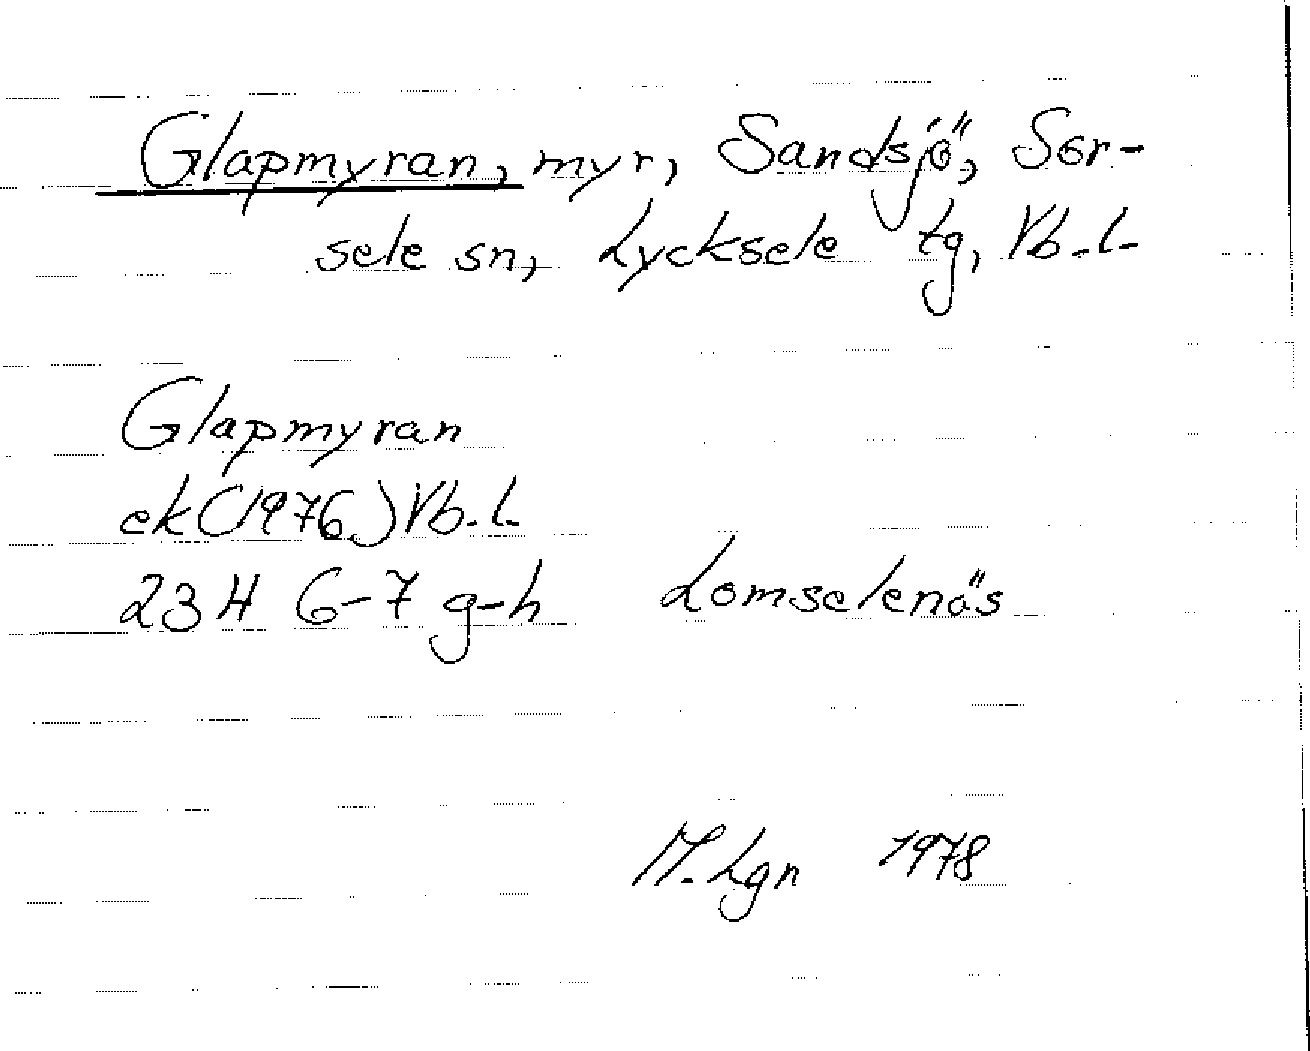 Glapmyran, myr, Sandsjö, Sor-
sele sn, Lycksele tg, Vb.l.
Glapmyran
ek(1976)Vb.l.
23 H 6-7 g-h Lomselenäs
M.Lgn 1978